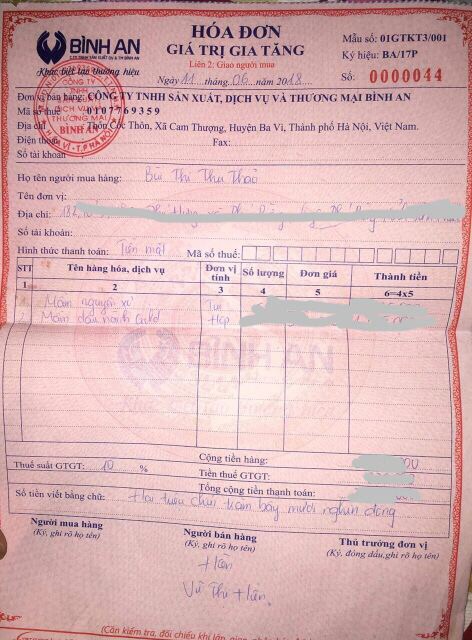 BÌNH AN
CTY TNHH SẢN XUẤT, DỊCH VỤ & TM BÌNH AN
Khác biệt tạo thương hiệu
HÓA ĐƠN
GIÁ TRỊ GIA TĂNG
Liên 2: Giao người mua
Ngày 11 tháng 06 năm 2018
Mẫu số: 01GTKT3/001
Ký hiệu: BA/17P
Số: 0000044
Đơn vị bán hàng: CÔNG TY TNHH SẢN XUẤT, DỊCH VỤ VÀ THƯƠNG MẠI BÌNH AN
Mã số thuế: 0107769359
Địa chỉ: Thôn Cốc Thôn, Xã Cam Thượng, Huyện Ba Vì, Thành phố Hà Nội, Việt Nam.
Điện thoại: Fax:
Số tài khoản
CÔNG TY
TNHH
DỊCH VỤ VÀ
THƯƠNG MẠI
BÌNH AN
H. BA VÌ - T.P HÀ NỘI
Họ tên người mua hàng: Bùi Thị Thu Thảo
Tên đơn vị:
Địa chỉ:
Số tài khoản:
Hình thức thanh toán: Tiền mặt Mã số thuế:
STT Tên hàng hóa, dịch vụ Đơn vị tính Số lượng Đơn giá Thành tiền
1 2 3 4 5 6=4x5
1 Mầm nguyên xơ Túi
2 Mầm đậu nành Gold Hộp
BÌNH AN
Cộng tiền hàng: 00
Thuế suất GTGT: 10 % Tiền thuế GTGT:
Tổng cộng tiền thanh toán:
Số tiền viết bằng chữ: Hai triệu chín trăm bảy mươi nghìn đồng
Người mua hàng Người bán hàng Thủ trưởng đơn vị
(Ký, ghi rõ họ tên) (Ký, ghi rõ họ tên) (Ký, đóng dấu, ghi rõ họ tên)
Hiền
Vũ Thị Hiền
(Cần kiểm tra, đối chiếu khi lập, giao, nhận hóa đơn)